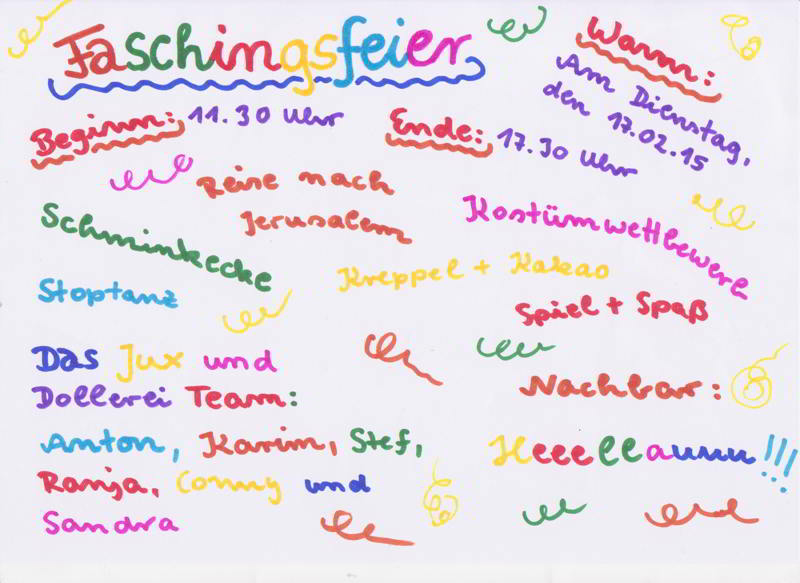 Faschingsfeier
Wann:
Am Dienstag,
den 17.02.15
Beginn: 11.30 Uhr
Ende: 17.30 Uhr
Reise nach
Jerusalem
Schminkecke
Kostümwettbewerb
Kreppel + Kakao
Stoptanz
Spiel + Spaß
Das Jux und
Dollerei Team:
Nachbar:
Anton, Karim, Stef,
Heeellauuu!!!
Ranja, Conny und
Sandra